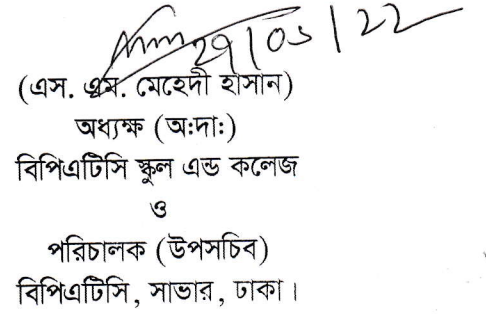 29/05/22
(এস. এম. মেহেদী হাসান)
অধ্যক্ষ (অ:দা:)
বিপিএটিসি স্কুল এন্ড কলেজ
ও
পরিচালক (উপসচিব)
বিপিএটিসি, সাভার, ঢাকা।